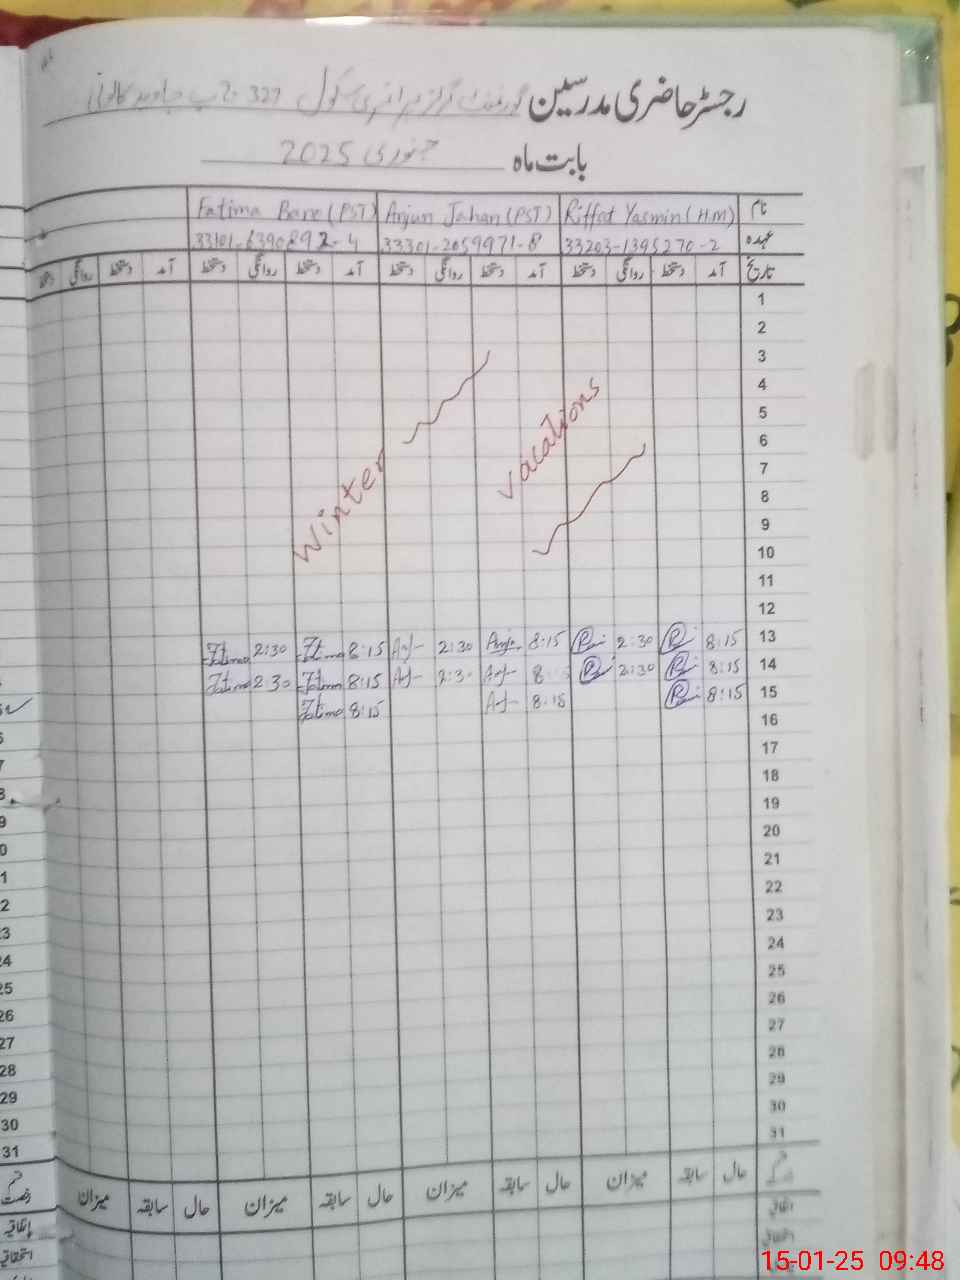 رجسٹر حاضری مدرسین گورنمنٹ گرلز پرائمری سکول 327 ج ب جاوید کالونی
بابت ماہ جنوری 2025
نام Riffat Yasmin (H.M) Anjum Jahan (PST) Fatima Bano (PST)
عہدہ 33203-1395270-2 33301-2059971-8 33101-6390892-4
تاریخ آمد دستخط روانگی دستخط آمد دستخط روانگی دستخط آمد دستخط روانگی دستخط آمد دستخط روانگی دستخط
1
2
3
4
5
6
7
8
9
10
11
12
Winter vacations
13 8:15 2:30 8:15 Anju 2:30 Anj 8:15 Fatima 2:30 Fatima
14 8:15 2:30 8:15 Anj 2:30 Anj 8:15 Fatima 2:30 Fatima
15 8:15 8:15 Anj 8:15 Fatima
16
17
18
19
20
21
22
23
24
25
26
27
28
29
30
31
حال سابقہ میزان حال سابقہ میزان حال سابقہ میزان حال سابقہ میزان
اتفاقیہ
استحقاقیہ
23
24
25
26
27
28
29
30
31
قسم رخصت
اتفاقیہ
استحقاقیہ
15-01-25 09:48